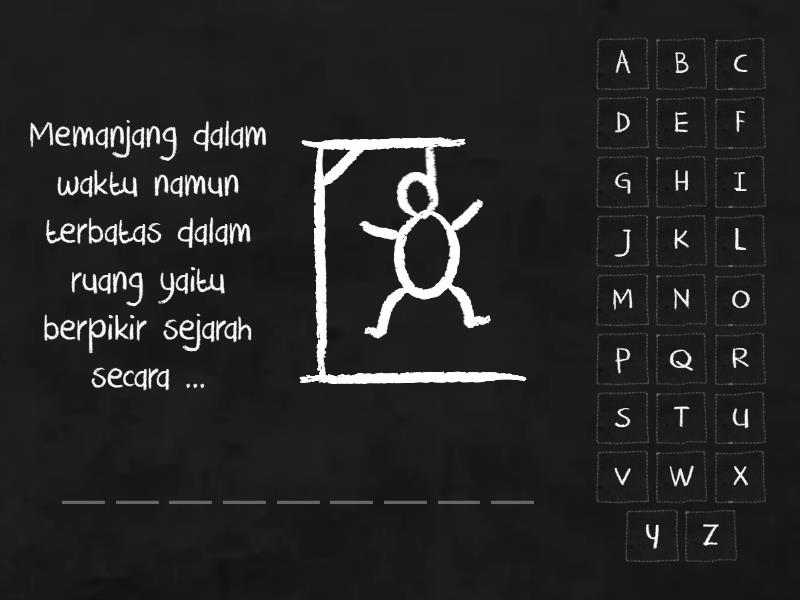 Memanjang dalam
waktu namun
terbatas dalam
ruang yaitu
berpikir sejarah
secara ...
A B C
D E F
G H I
J K L
M N O
P Q R
S T U
V W X
Y Z